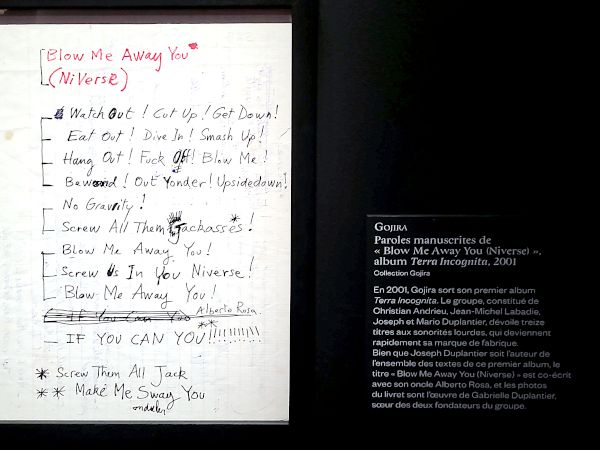 Blow Me Away You
(NiVerse)
Watch Out! Cut Up! Get Down!
Eat Out! Dive In! Smash Up!
Hang Out! Fuck Off! Blow Me!
Out Yonder! Upsidedown!
No Gravity!
Screw All Them Jackasses*!
Blow Me Away You!
Screw Us In You Niverse!
Blow Me Away You!
If You Can You Alberto Rosa
**
IF YOU CAN YOU!!!!!!!!!!
* Screw Them All Jack
** Make Me Sway You
GOJIRA
Paroles manuscrites de
« Blow Me Away You (Niverse) »,
album Terra Incognita, 2001
Collection Gojira
En 2001, Gojira sort son premier album
Terra Incognita. Le groupe, constitué de
Christian Andrieu, Jean-Michel Labadie,
Joseph et Mario Duplantier, dévoile treize
titres aux sonorités lourdes, qui deviennent
rapidement sa marque de fabrique.
Bien que Joseph Duplantier soit l'auteur de
l'ensemble des textes de ce premier album, le
titre « Blow Me Away You (Niverse) » est co-écrit
avec son oncle Alberto Rosa, et les photos
du livret sont l'œuvre de Gabrielle Duplantier,
sœur des deux fondateurs du groupe.